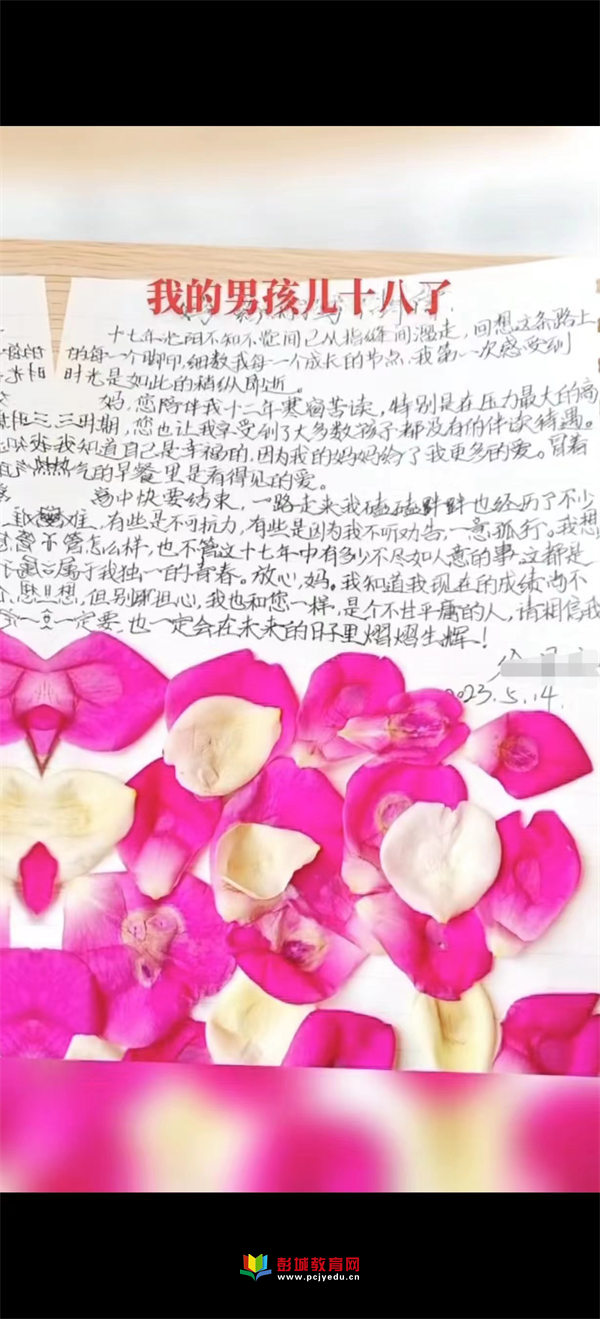 我的男孩儿十八了
十七年光阴不知不觉间已从指缝间溜走，回想这条路上
的每一个脚印，细数我每一个成长的节点，我第一次感受到
时光是如此的稍纵即逝。
妈，您陪伴我十二年寒窗苦读，特别是在压力最大的高
三时期，您也让我享受到了大多数孩子都没有的伴读待遇。
我知道自己是幸福的，因为我的妈妈给了我更多的爱。冒着
热气的早餐里是看得见的爱。
高中快要结束，一路走来我磕磕畔畔也经历了不少
难，有些是不可抗力，有些是因为我不听劝告，一意孤行。我想
不管怎么样，也不管这十七年中有多少不尽如人意的事，这都是
属于我独一的青春。放心，妈。我知道我现在的成绩尚不
想，但别担心，我也和您一样，是个不甘平庸的人，请相信我
一定要，也一定会在未来的日子里熠熠生辉！
2023.5.14.
彭城教育网
www.pcjyedu.cn